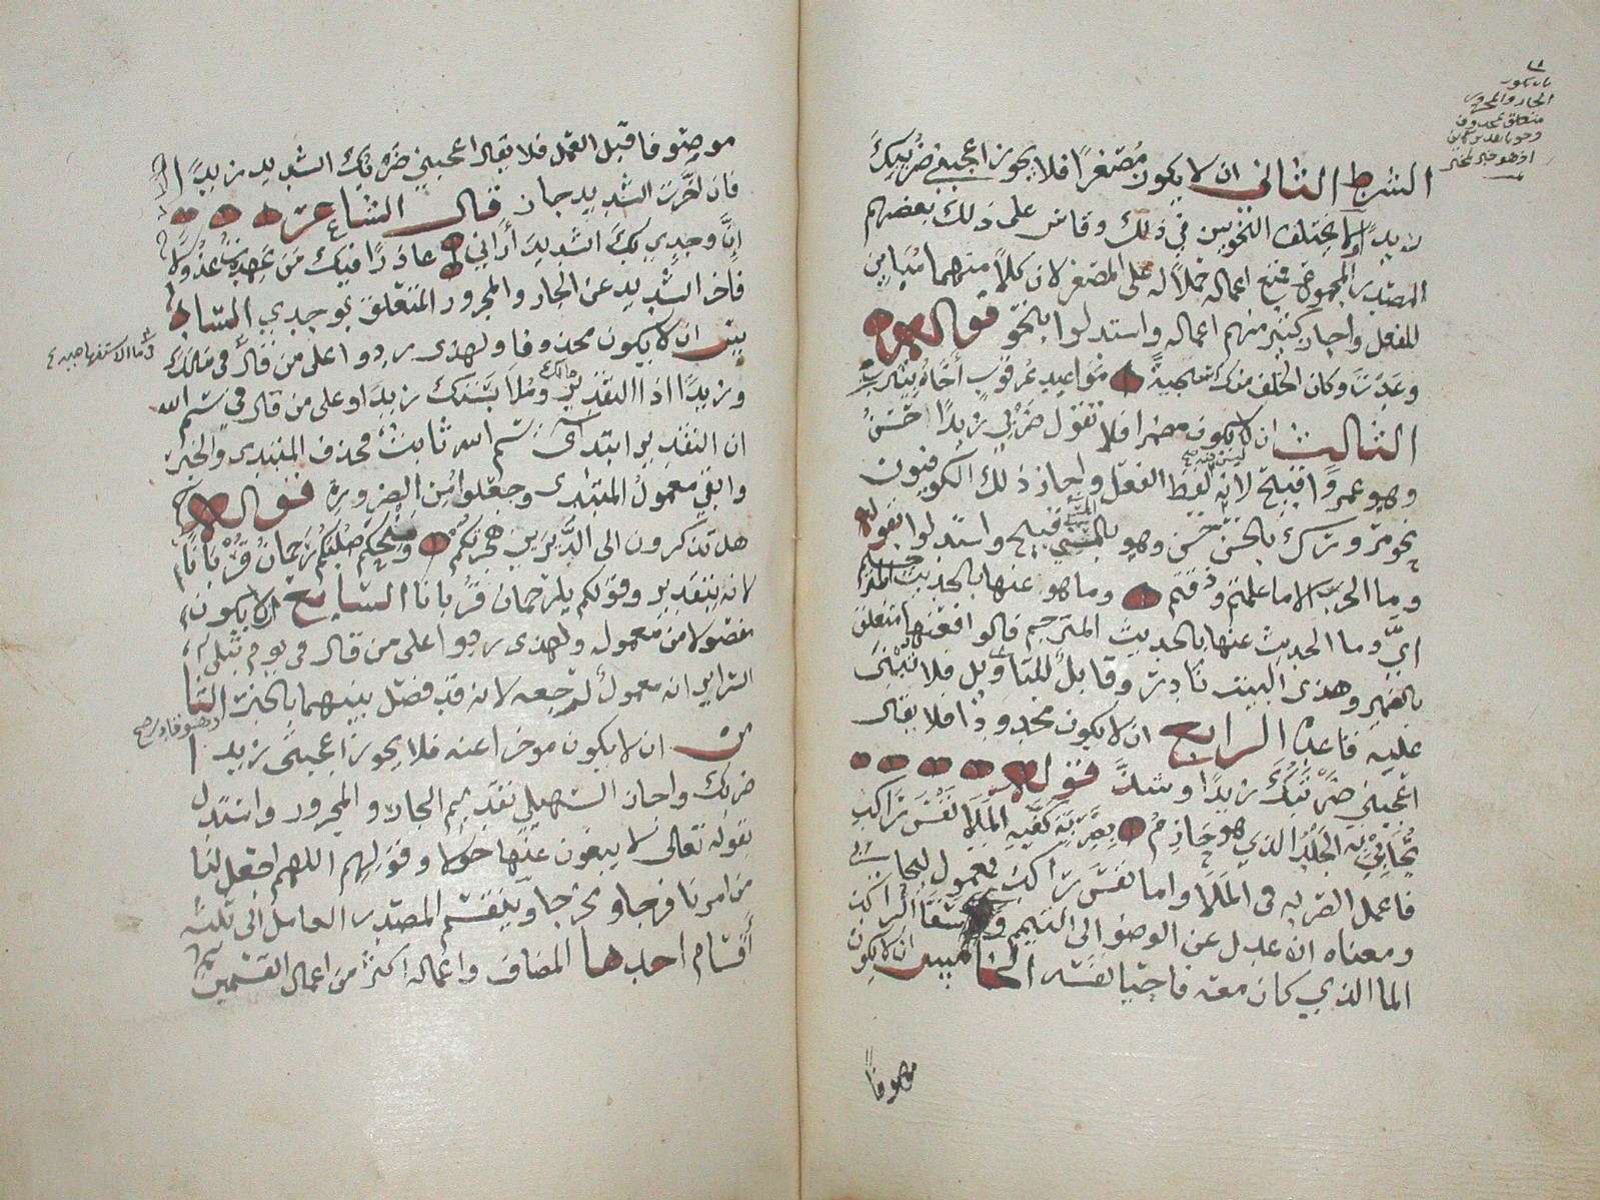 الشرط الثاني ان لا يكون مصغرا فلا يجوز اعجبني ضريبك
زيدا ولا يختلف النحويين في ذلك وقاس على ذلك بعضهم
المصدر المجموع فمنع اعماله حملا له على المصغر لان كلا منهما مباين
للفعل واجاز كثير منهم اعماله واستدلوا بنحو قوله
وعدت وكان الخلف منك سجية مواعيد عرقوب أخاه بيثرب
الثالث ان لا يكون مضمرا فلا تقول ضربي زيدا حسن
وهو عمروا قبيح لانه ليس فيه لفظ الفعل واجاز ذلك الكوفيون
واستدلوا بقوله
وما الحرب الا ما علمتم وذقتم وما هو عنها بالحديث المرجم
اي وما الحديث عنها بالحديث المرجم قالوا فعنها متعلق
بالضمير وهذى البيت نادر وقابل للتاويل فلا تبنى
عليه قاعدة الرابع ان لا يكون محدودا فلا يقال
اعجبني ضربتك زيدا وشذ قوله
يحايي به الجلد الذي هو حازم بضربة كفيه الملا نفس راكب
فاعمل الضربه في الملا واما نفس راكب فمعمول ليحايي
ومعناه انه عدل عن الوضؤ الى التيمم وسقا الراكب
الما الذي كان معه فاحيا نفسه الخامس ان لا يكون
موصوفا
موصوفا قبل العمل فلا يقال اعجبني ضربك الشديد زيدا
فان اخرت الشديد جاز قال الشاعر
إن وجدي بك الشديد أراني عاذرا فيك من عهدت عذولا
فاخر الشديد عن الجار والمجرور المتعلق بوجدي السا
دس ان لا يكون محذوفا ولهذى ردوا على من قال في مالك
وزيدا اذا التقدير ومالك وملابستك زيدا وعلى من قال في بسم الله
ان التقدير ابتدآئي بسم الله ثابت فحذف المبتدى والخبر
وابقي معمول المبتدى وجعلوا من الضرورة قوله
هل تذكرون الى الديرين هجرتكم ومسحكم صلبكم رحمان قربانا
لانه بتقدير وقولكم يا رحمان قربانا السابع ان لا يكون
مفصولا من معموله ولهذى ردوا على من قال في يوم تبلى
السرائر انه معمول لرجعه لانه قد فصل بينهما بالخبر الثا
من ان لا يكون موخرا عنه فلا يجوز اعجبني زيدا
ضربك واجاز السهيلي تقديم الجار والمجرور واستدل
بقوله تعالى لا يبغون عنها حولا وقولهم اللهم اجعل لنا
من امرنا فرجا ومخرجا وينقسم المصدر العامل الى ثلثه
أقسام احدها المضاف واعماله اكثر من اعمال القسمين